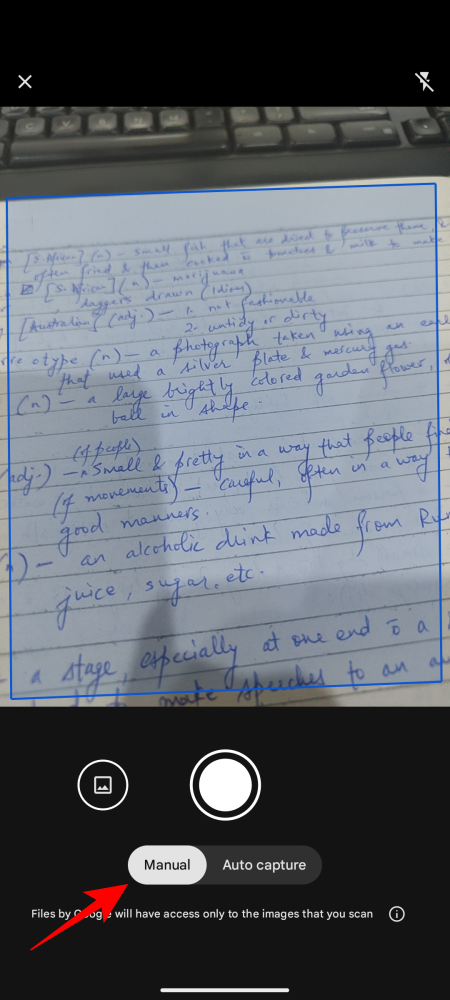 [S. African] (n) - small fish that are dried to preserve them, &
often fried & then cooked ō tomatoes & milk to make
[S. African] (n) - marijuana
daggers drawn (idiom)
[Australian] (adj.) - 1. not fashionable
2. untidy or dirty
otype (n) - a photograph taken using an
that used a silver plate & mercury gas.
(n) - a large brightly colored garden flower,
ball in shape.
(of people)
adj.) - small & pretty in a way that people
(of movements) - careful, often in a way
good manners.
n) - an alcoholic drink made from Rum
juice, sugar, etc.
a stage, especially at one end ō a
make speeches to an
Manual
Auto capture
Files by Google will have access only to the images that you scan